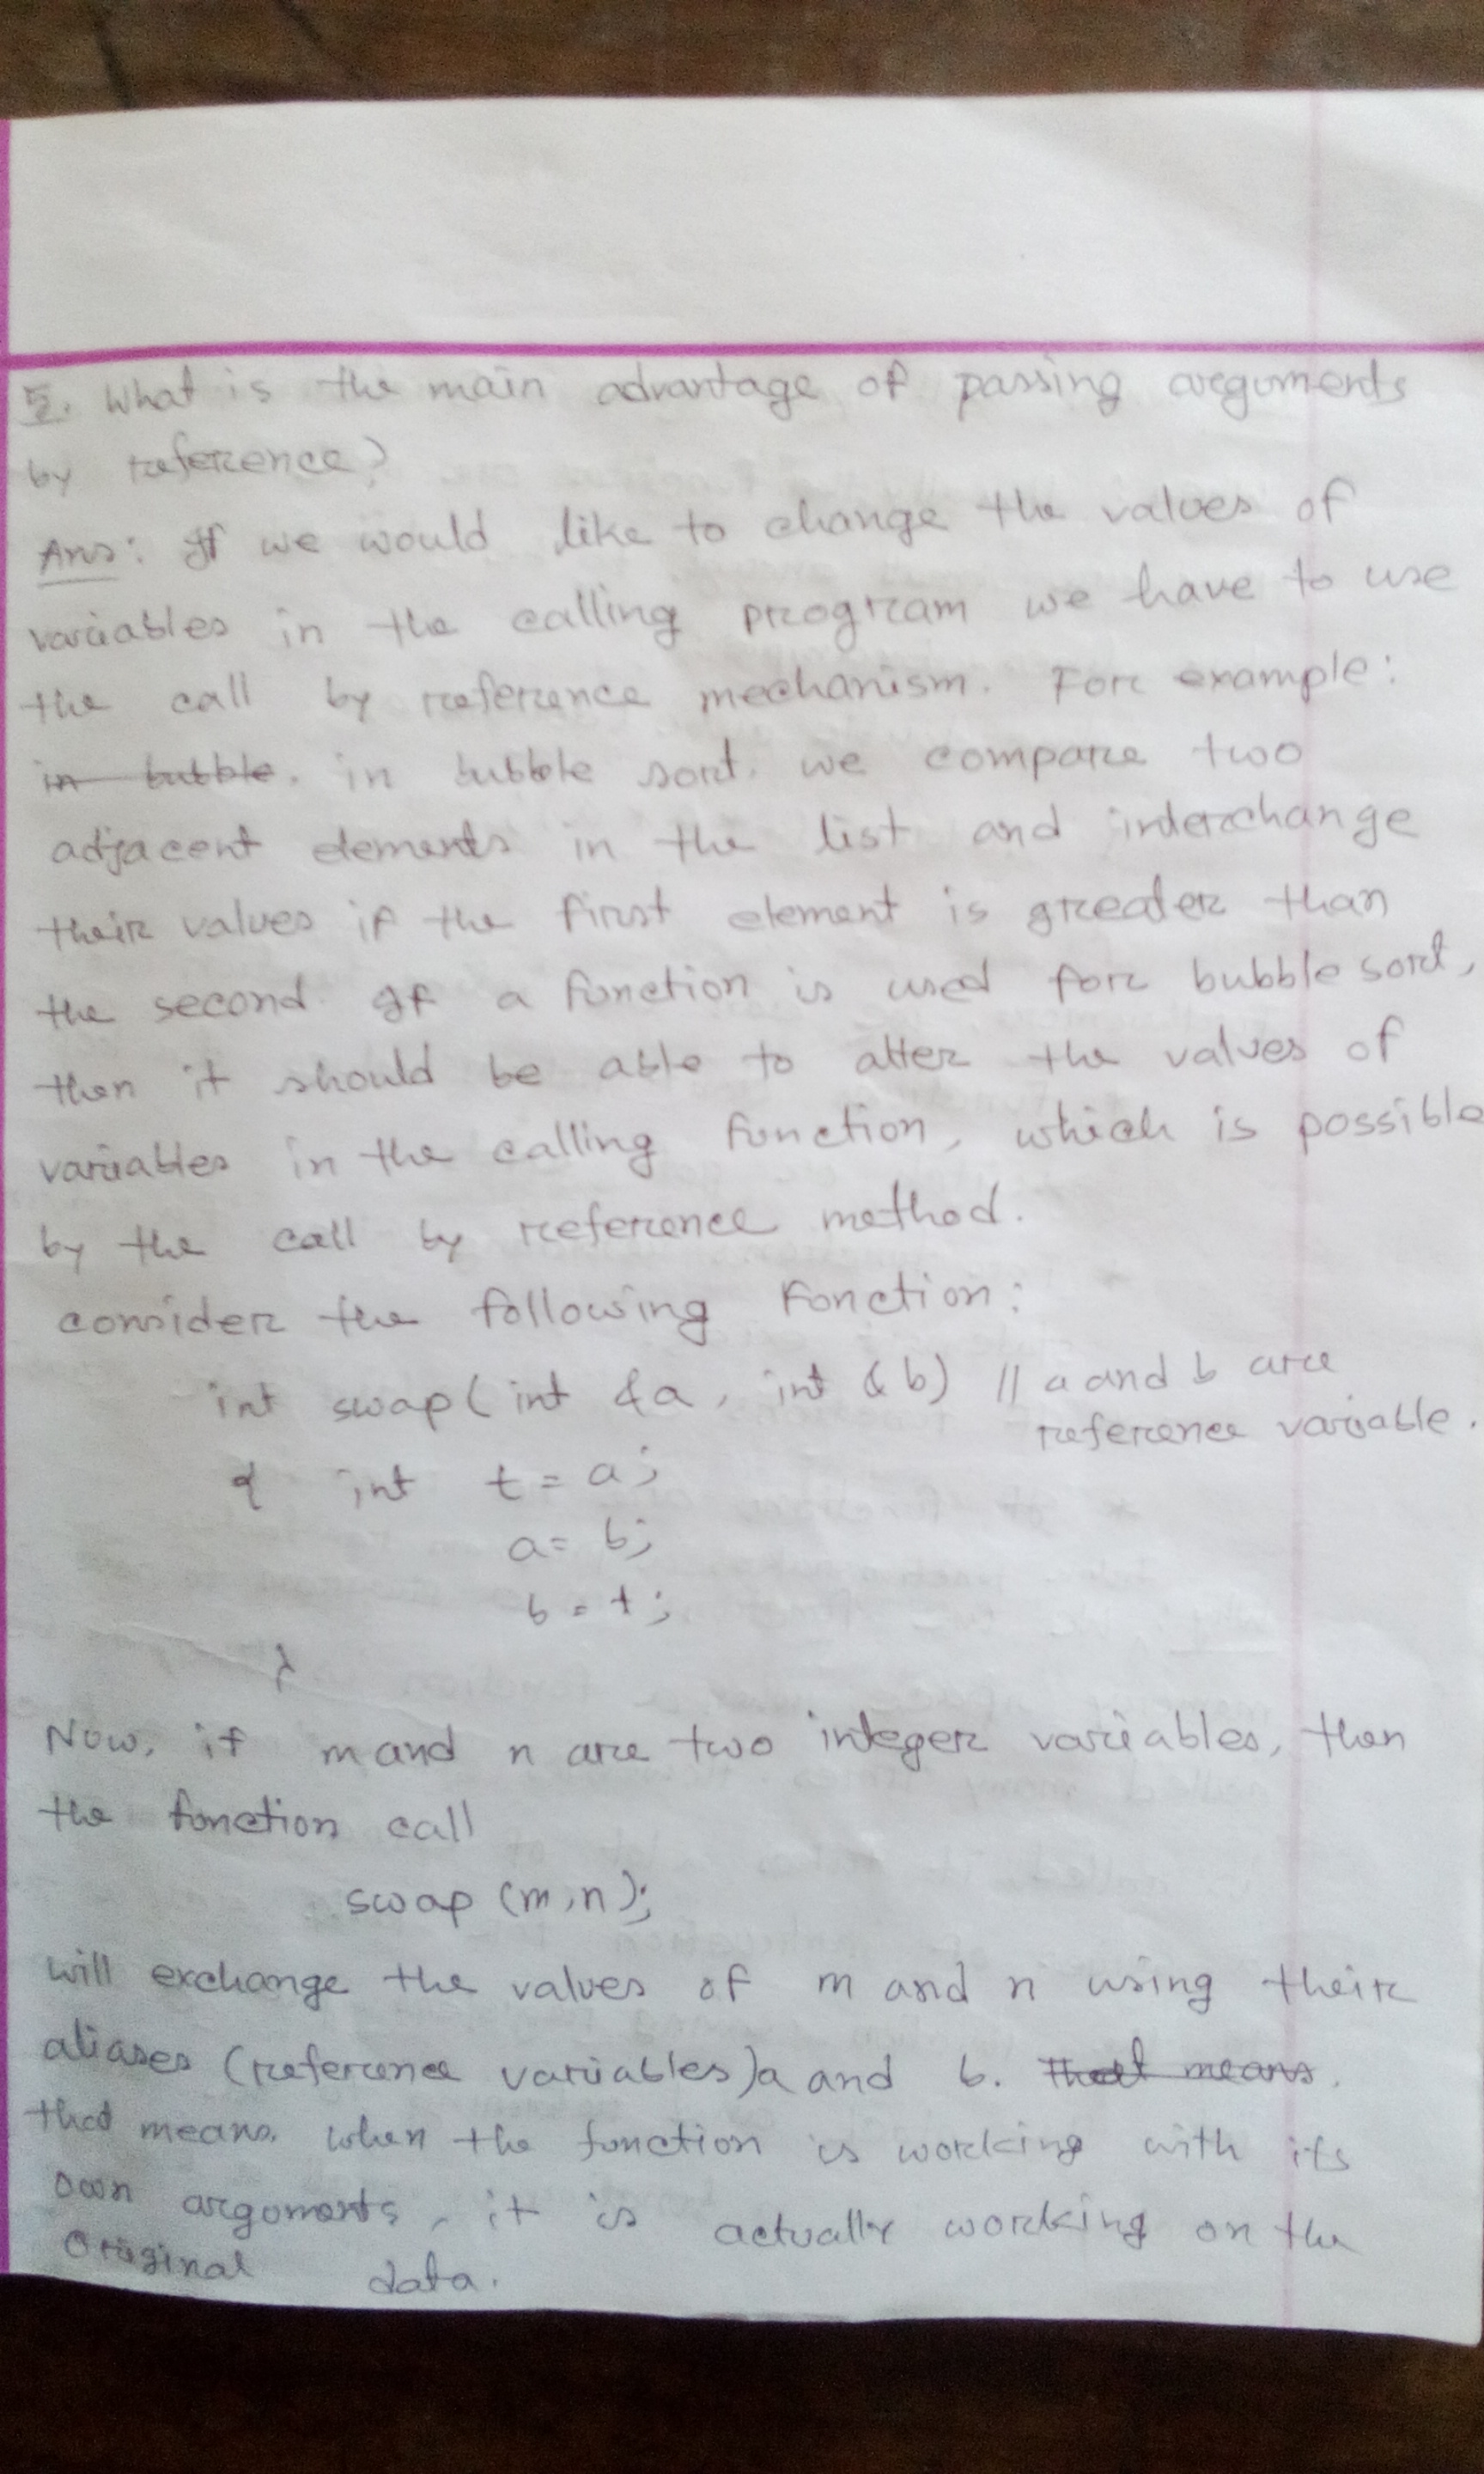 5. What is the main advantage of passing arguments
by reference?
Ans: If we would like to change the values of
variables in the calling program we have to use
the call by reference mechanism. For example:
in bubble. in bubble sort. we compare two
adjacent elements in the list and interchange
their values if the first element is greater than
the second. If a function is used for bubble sort,
then it should be able to alter the values of
variables in the calling function, which is possible
by the call by reference method.
consider the following Function:
int swap(int &a, int &b) // a and b are
reference variable.
{ int t = a;
a = b;
b = t;
}
Now, if m and n are two integer variables, then
the function call
swap (m,n);
will exchange the values of m and n using their
aliases (reference variables)a and b. that means.
that means, when the function is working with its
own arguments, it is actually working on the
Original data.